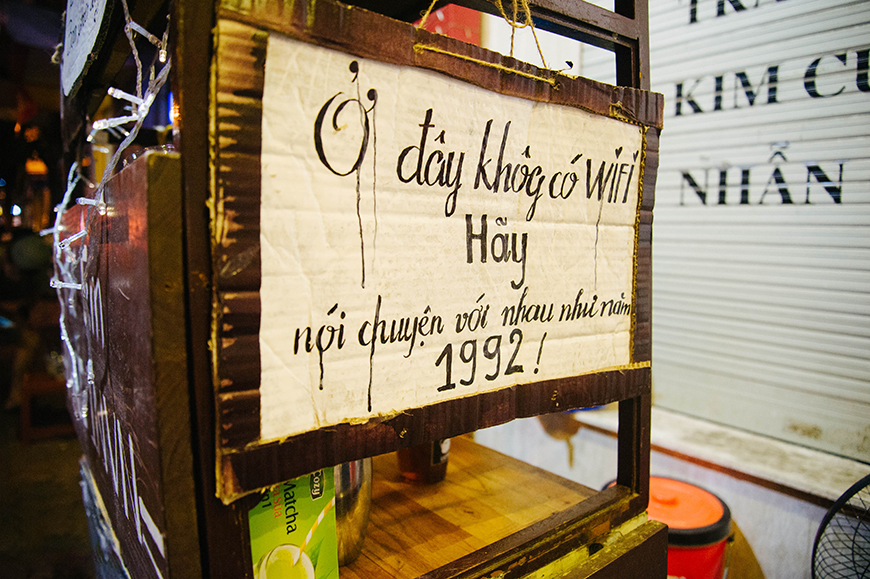 Ở đây không có WiFi
Hãy
nói chuyện với nhau như năm
1992!
KIM CƯ
NHẪN
Cozy
Matcha